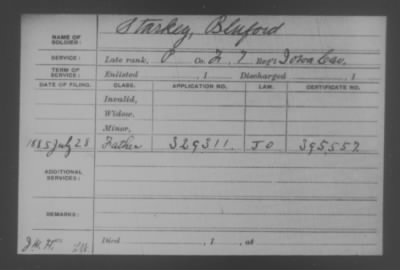 NAME OF SOLDIER: Starkey, Bluford
SERVICE: Late rank, P Co. L, 7 Reg't Iowa Cav.
TERM OF SERVICE: Enlisted , 1 Discharged , 1
DATE OF FILING. CLASS. APPLICATION NO. LAW. CERTIFICATE NO.
Invalid,
Widow,
Minor,
1885 July 28 Father 329311. J O 395,557
ADDITIONAL SERVICES:
REMARKS:
Died , 1 , at